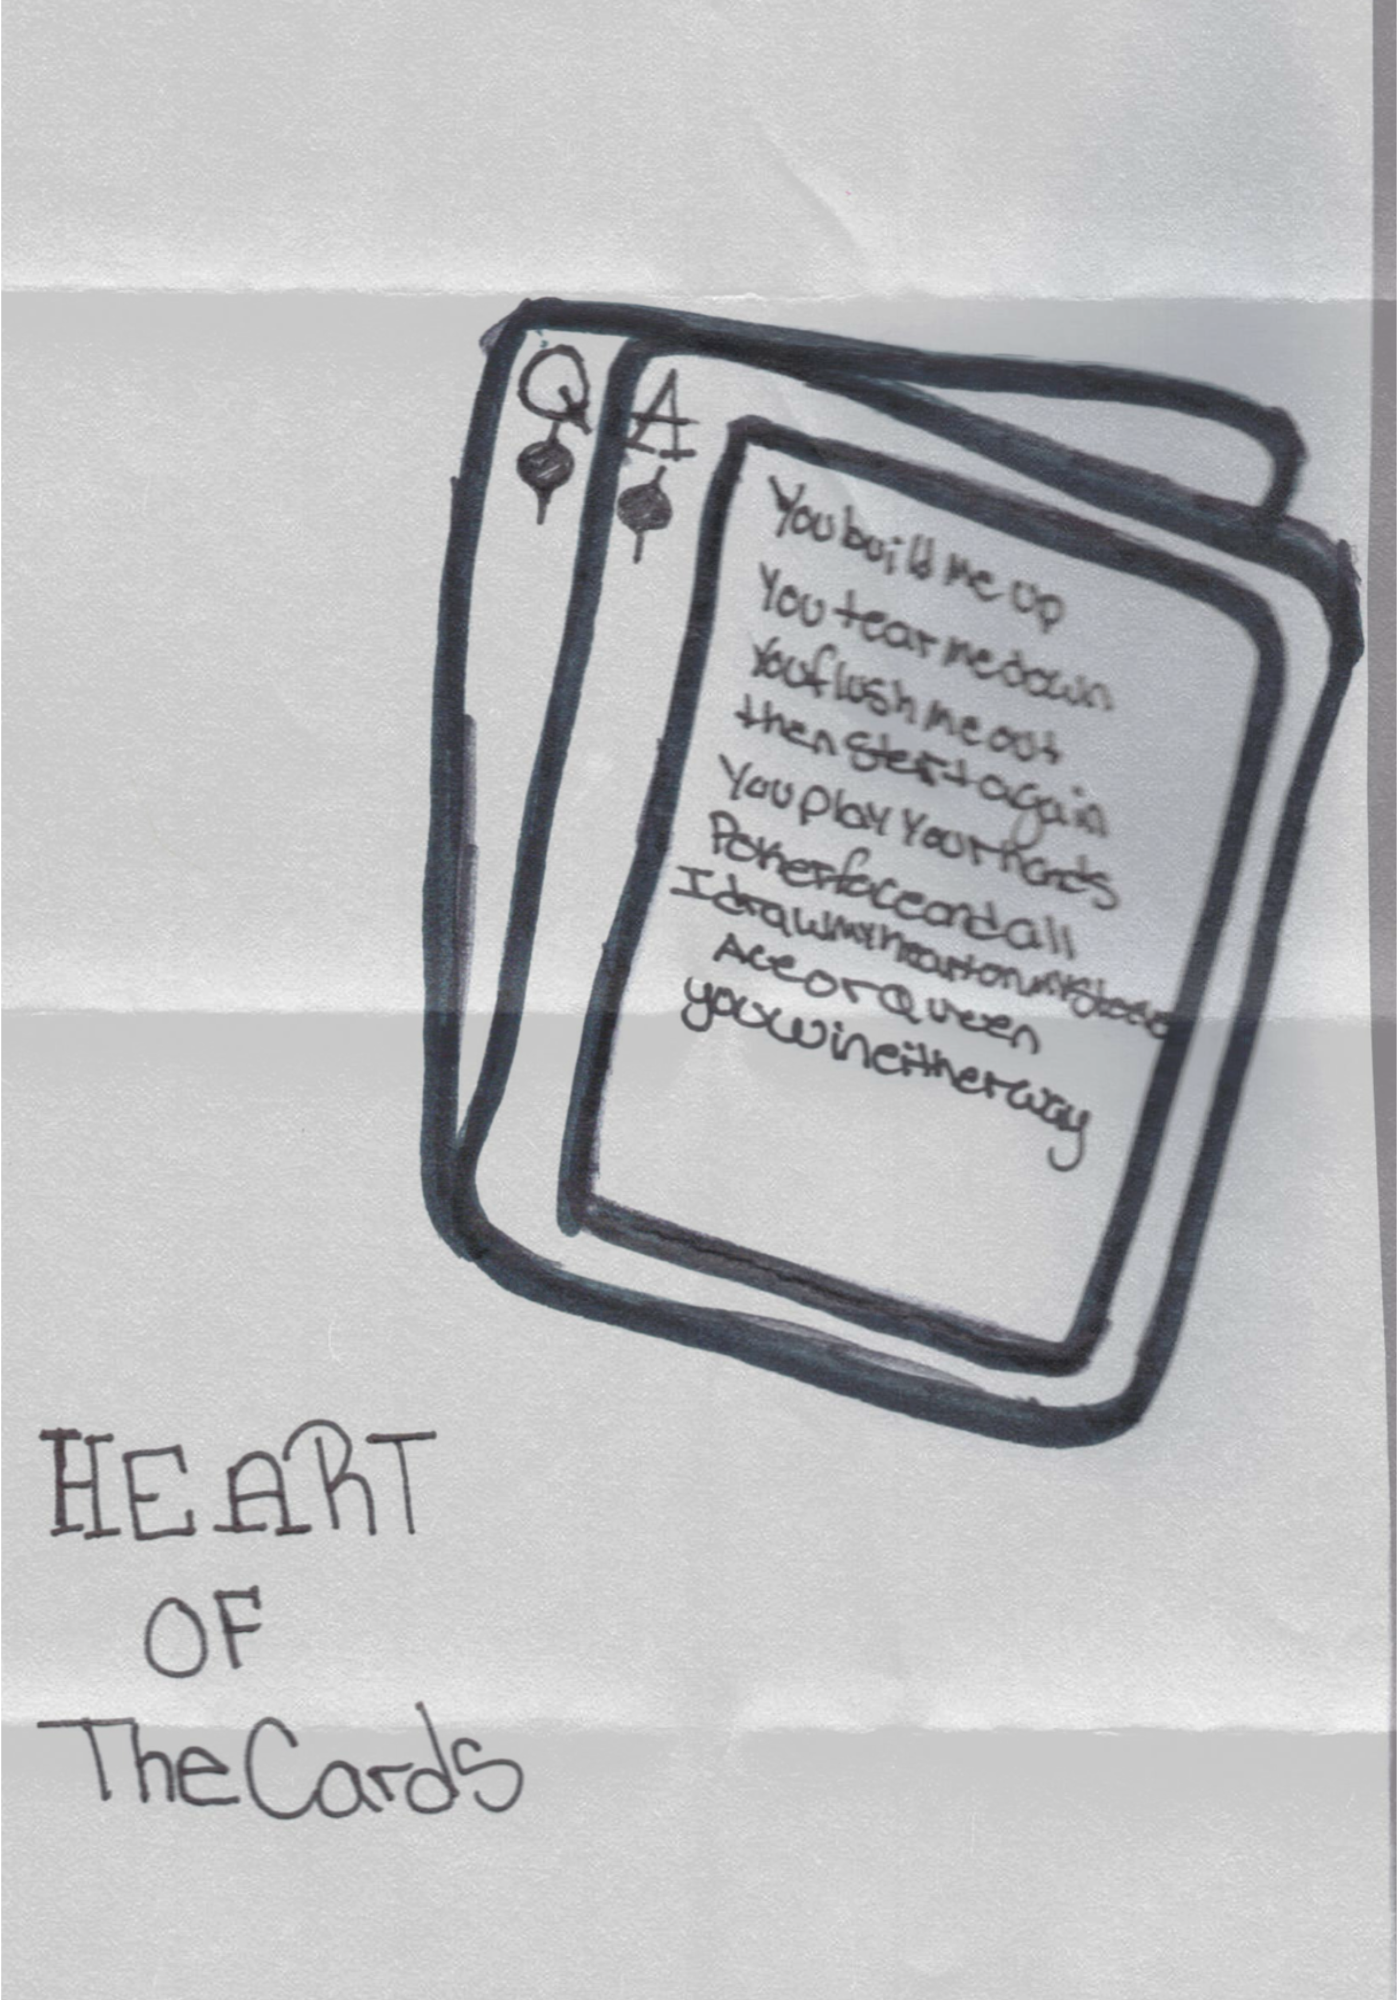 Q
A
You build me up
You tear me down
You flush me out
then start again
You play Your hands
Poker face and all
I draw my heart on my sleeve
Ace or Queen
you win either way
HEART
OF
The Cards